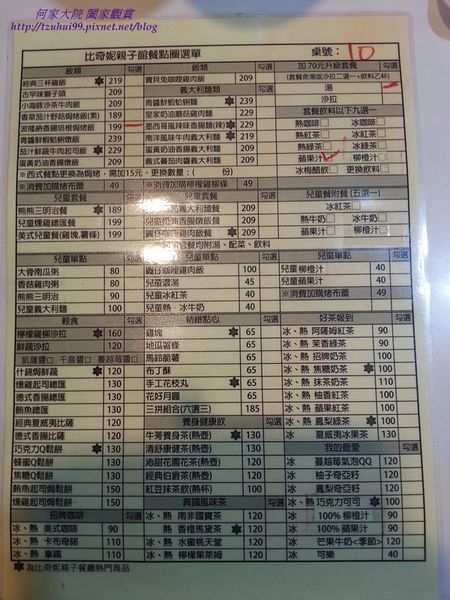 何家大院 闔家觀賞
http://tzuhui99.pixnet.net/blog
比奇妮親子館餐點圈選單
桌號: 10
飯類 勾選 飯類 勾選 加70元升級套餐
經典三杯雞飯 219 寶貝兔咖哩雞肉飯
(套餐含湯或沙拉二選一+飲料乙杯)
古早味獅子頭 209 義大利麵類 勾選 湯
小海豚沙茶牛肉飯 209 青醬鮮蝦蛤蜊麵 沙拉
香草茄汁野菇焗烤飯(素) 189 皇家奶油燻雞義大利麵 套餐飲料以下九選一
波隆納香腸培根焗烤飯 199 墨西哥風辣味香腸麵(辣) 熱咖啡 冰咖啡
青醬鮮蝦蛤蜊焗墩飯 229 南洋風味牛肉義大利麵 熱紅茶 冰紅茶
茄汁鮮蔬牛肉起司飯 229 蛋黃奶油香腸義大利麵 熱綠茶 冰綠茶
蛋黃奶油香腸燉飯 209 義式蕃茄肉醬義大利麵 蘋果汁 柳橙汁
※西式餐點更換為焗烤,需加15元。更換數量:( 份) 冰梅醋飲 更換飲料
※消費加購烤布蕾 49 ※消費加購檸檬雞柳條 49
兒童套餐 勾選 兒童套餐 勾選 兒童餐附餐(五選一)
熊熊三明治餐 189 義大利麵餐 199 冰紅茶
兒童燻雞總匯餐 199 兒童奶油香腸燉飯餐 199 熱牛奶 冰牛奶
美式兒童餐(雞塊.薯條) 199 寶貝咖哩雞肉飯餐 199 蘋果汁 柳橙汁
套餐均附湯、配菜、飲料
兒童單點 勾選 兒童單點 勾選 兒童單點 勾選
大骨南瓜粥 80 寶貝咖哩雞肉飯 100 兒童柳橙汁 40
香菇雞肉粥 80 兒童濃湯 45 兒童蘋果汁 40
熊熊三明治 90 兒童冰紅茶 40 ※消費加購烤布蕾 49
兒童義大利麵 100 兒童熱、冰牛奶 40
輕食 勾選 精緻點心 勾選 好茶報到 勾選
檸檬雞柳沙拉 160 雞塊 65 冰、熱 阿薩姆紅茶 90
鮮蔬沙拉 110 地瓜薯條 65 冰、熱 茉香綠茶 90
凱薩醬 千島醬 蔓越莓醬 馬鈴薯 65 冰、熱 招牌奶茶 100
什錦焗鮮蔬 120 布丁酥 65 冰、熱 焦糖奶茶 100
燻雞起司總匯 120 手工花枝丸 65 冰、熱 抹茶奶茶 110
德式香腸總匯 130 花好月圓 65 冰、熱 柚香紅茶 100
鮪魚總匯 130 三拼組合(六選三) 185 冰、熱 蘋果紅茶 100
經典夏威夷比薩 120 養身健康飲 勾選 冰、熱 鳳梨綠茶 100
德式香腸比薩 120 牛蒡養身茶(熱壺) 130 冰 夏威夷冰果茶 130
巧克力Q鬆餅 130 清舒康健茶(熱壺) 130 我的最愛 勾選
蜂蜜Q鬆餅 120 沁甜花園花茶(熱壺) 120 冰 蔓越莓氣泡QQ 120
焦糖Q鬆餅 120 經典伯爵茶(熱壺) 120 冰 柚子奇亞籽 120
鮪魚起司焗鬆餅 130 紅豆抹茶飲(熱杯) 100 冰 鳳梨奇亞籽 120
燻雞起司焗鬆餅 130 異國風味茶 勾選 冰、熱 巧克力可可 100
招牌咖啡 勾選 冰、熱 南非國寶茶 120 100% 柳橙汁 90
冰、熱 美式咖啡 90 熱 香橙瑪黛茶 120 100% 蘋果汁 90
冰、熱 卡布奇諾 110 冰、熱 水蜜桃天堂 120 冰 芒果牛奶<季節> 120
冰、熱 拿鐵 110 冰、熱 檸檬果萊姆 120 冰 可樂 40
為比奇妮親子餐廳熱門商品